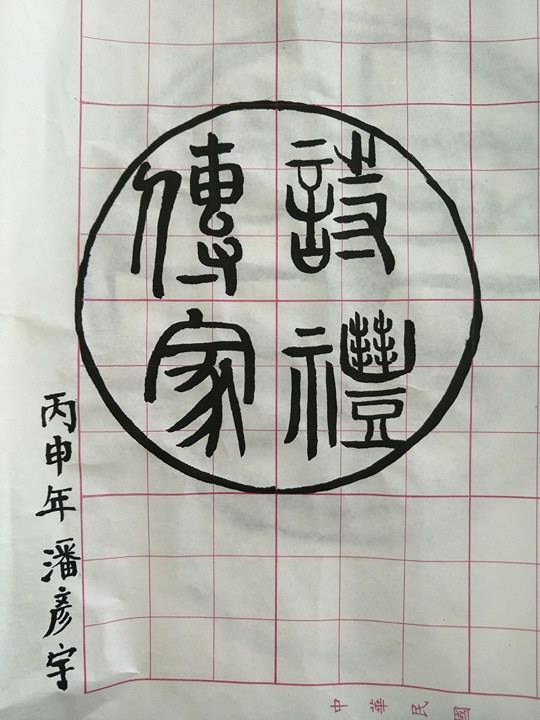 詩禮
傳家
丙申年 潘彥宇
中華民國